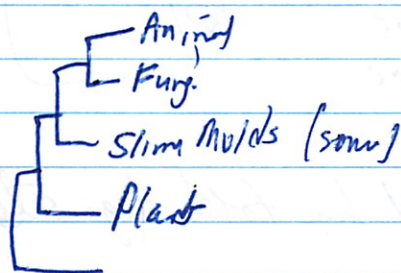 Animal
Fungi
Slime Molds (some)
Plant